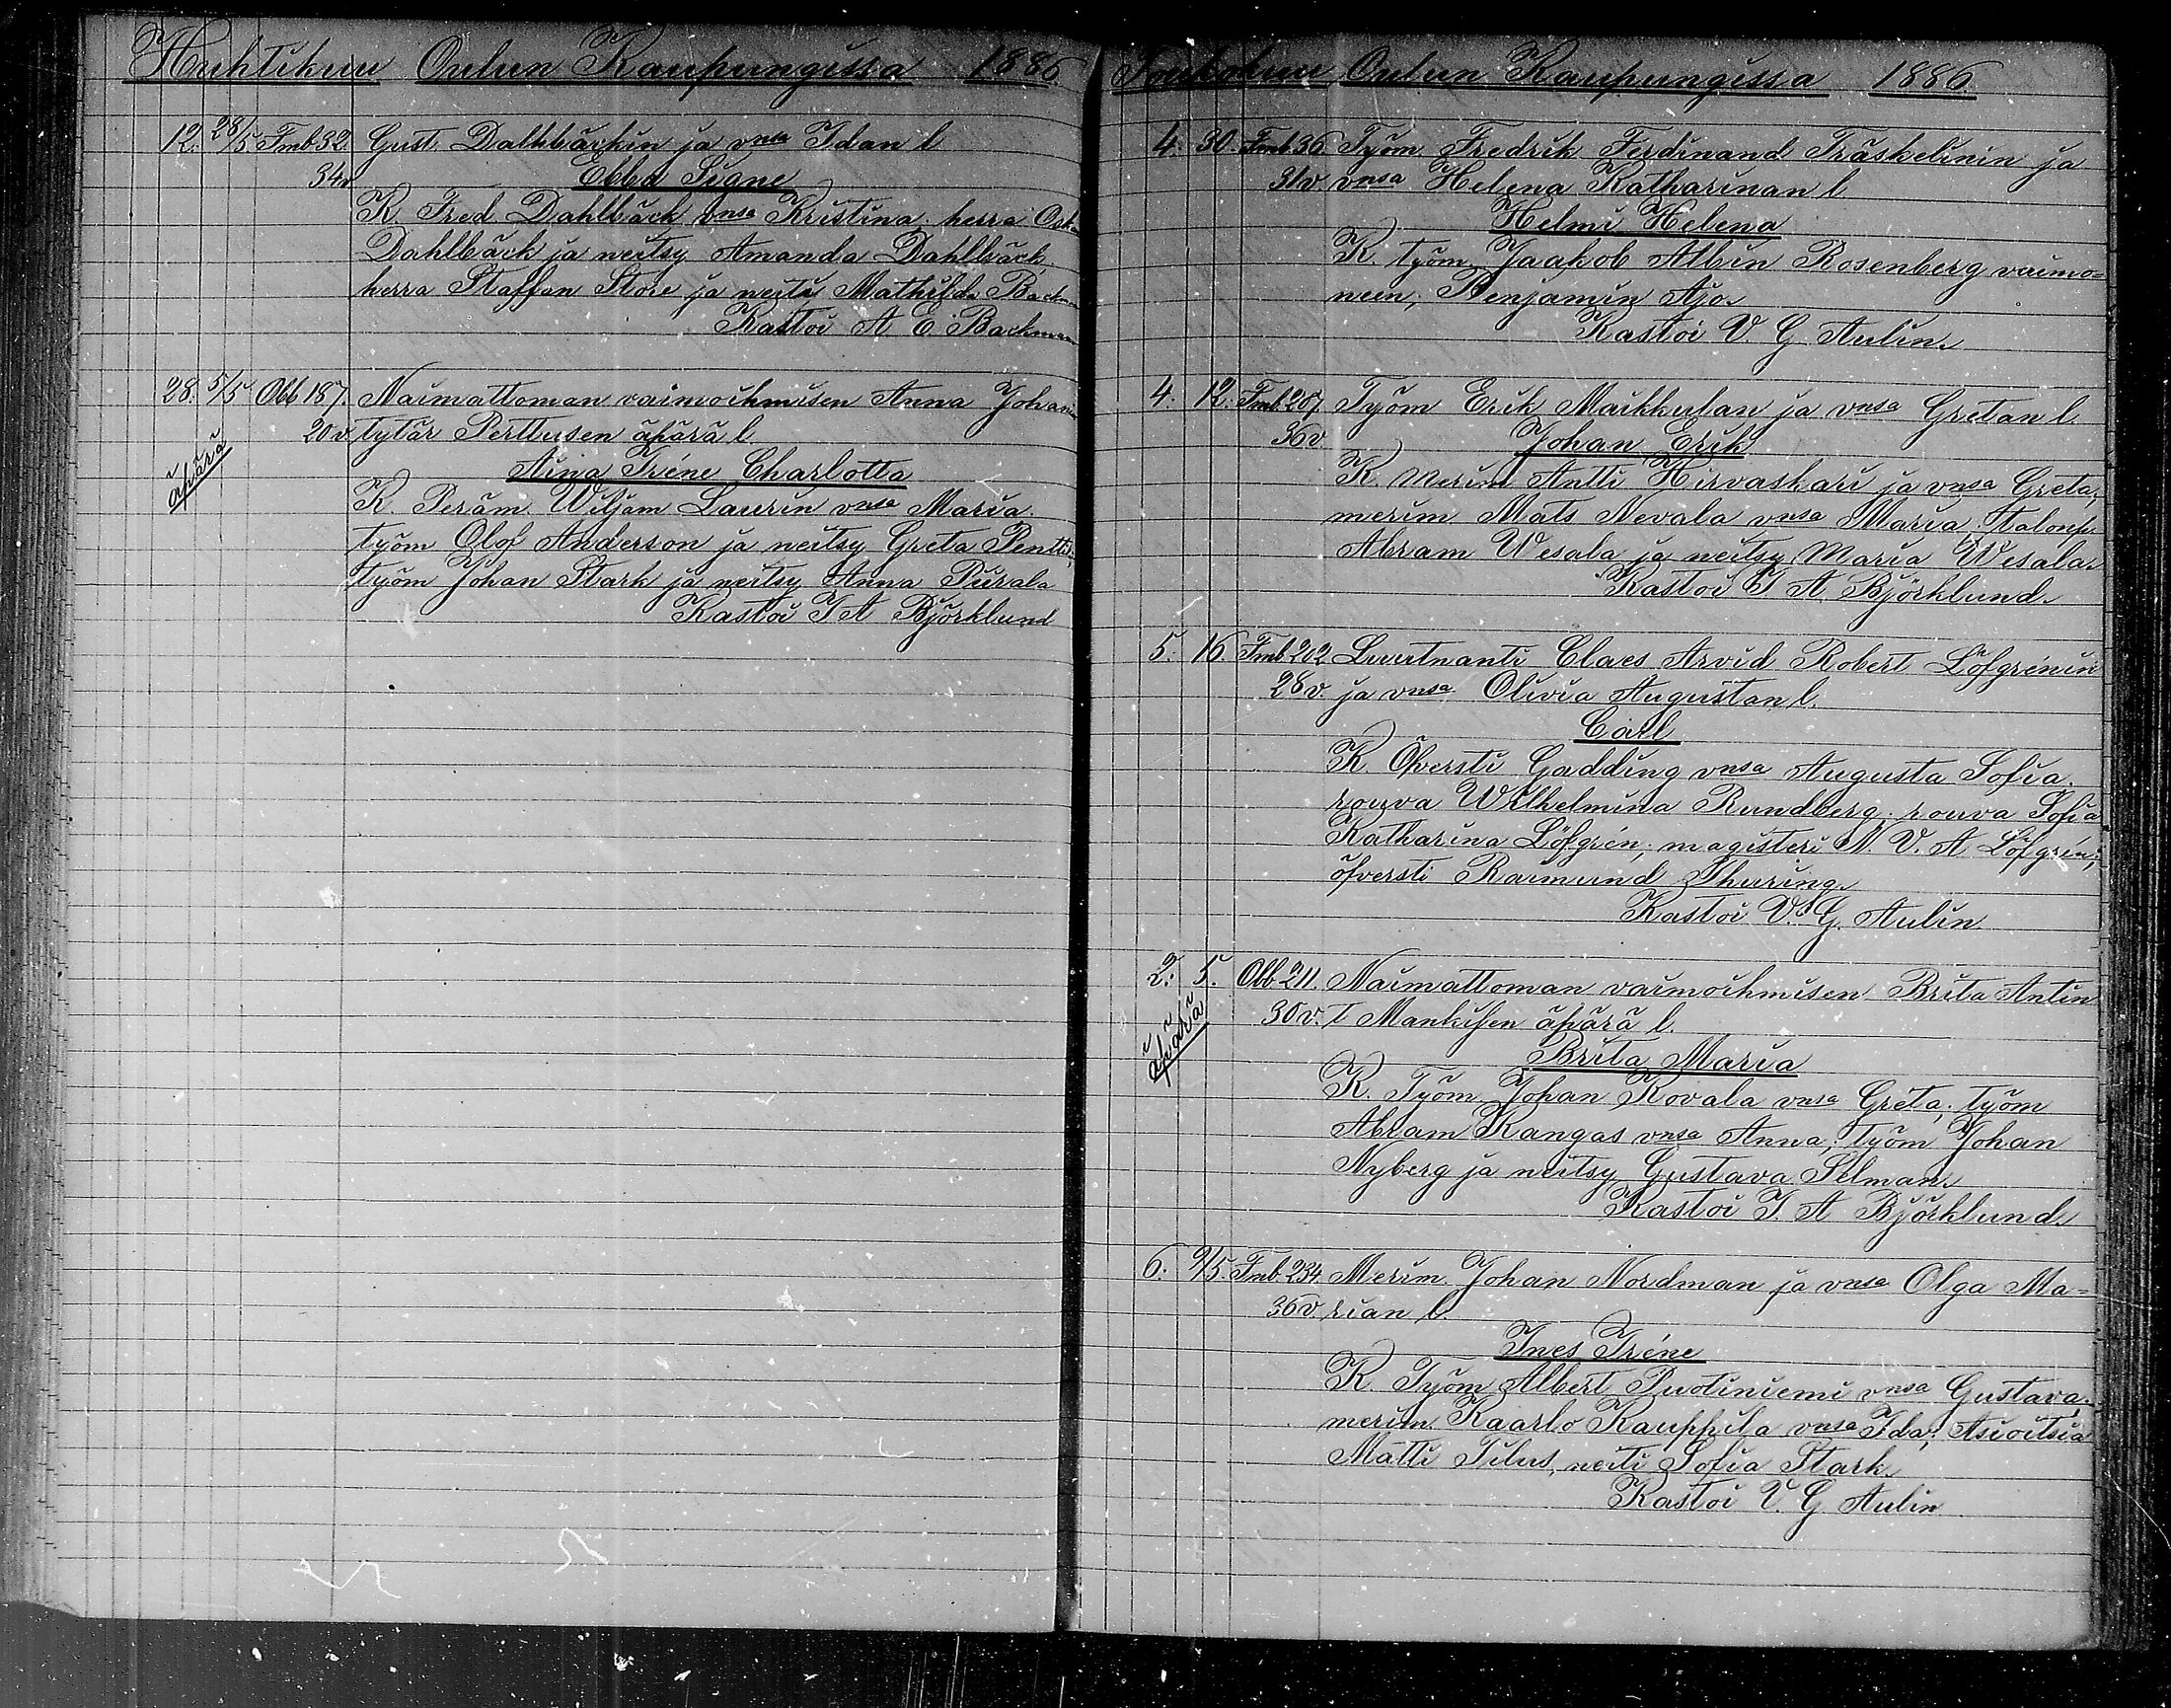 Huhtikuu Oulun Kaupungissa 1886
12. 28/5 Fmb 32 Gust. Dalhbäckin ja vnsa Idan l
34v Ebba Signe
K. Fred Dahlbäck vnsa Kristina; herra
Dahlbäck ja neitsy Amanda Dahlbäck,
herra Staffan Store ja neiti Mathilda
Kastoi A. E. Backman
28. 5/5 Obb 187. Naimattoman vaimoihmisen Anna Johan
20v tytär Perttusen äpärä l.
äpärä
Aina Iréne Charlotta
K. Peräm. Wiljam Laurin vnsa Maria
työm Olof Anderson ja neitsy Greta
työm Johan Stark ja neitsy Anna Piirala
Kastoi I A Björklund
Toukokuu Oulun Kaupungissa 1886
4. 30. Fmb 36 Työm. Fredrik Ferdinand Träskelinin ja
31v. vnsa Helena Katharinan l
Helmi Helena
K. työm. Jaakob Albin Rosenberg vaimo=
neen; Benjamin Ajo.
Kastoi V. G. Aulin.
4. 12. Fmb 207 Työm Erik Maikkulan ja vnsa Gretan l.
36v Johan Erik
K. Merim Antti Hirvaskari ja vnsa Greta;
merim. Mats Nevala vnsa Maria; Talonp.
Abram Wesala ja neitsy Maria Wesala.
Kastoi I A. Björklund.
5. 16. Fmb 202 Luutnanti Claes Arvid Robert Löfgrénin
28v. ja vnsa Olivia Augustan l.
Carl
K. Öfversti Gadding vnsa Augusta Sofia,
rouva Wilhelmina Rundberg, rouva Sofia
Katharina Löfgrén; magisteri N. V. A Löfgrén;
öfversti Raimund Thuring.
Kastoi V. G. Aulin.
2. 5. Obb 211. Naimattoman vaimoihmisen Brita Antin
30v. T. Mankisen äpärä l.
äpärä
Brita Maria
K. Työm. Johan Kovala vnsa Greta; työm
Abram Kangas vnsa Anna; työm Johan
Nyberg ja neitsy Gustava Selman.
Kastoi I. A Björklund.
6. 9/5 Fmb 234. Merim. Johan Nordman ja vnsa Olga Ma=
36v. rian l.
Ines Iréne
K. Työm Albert Puotiniemi vnsa Gustava,
merim. Kaarlo Kauppila vnsa Ida; Asioitsia
Matti Tilus, neiti Sofia Stark.
Kastoi V. G Aulin